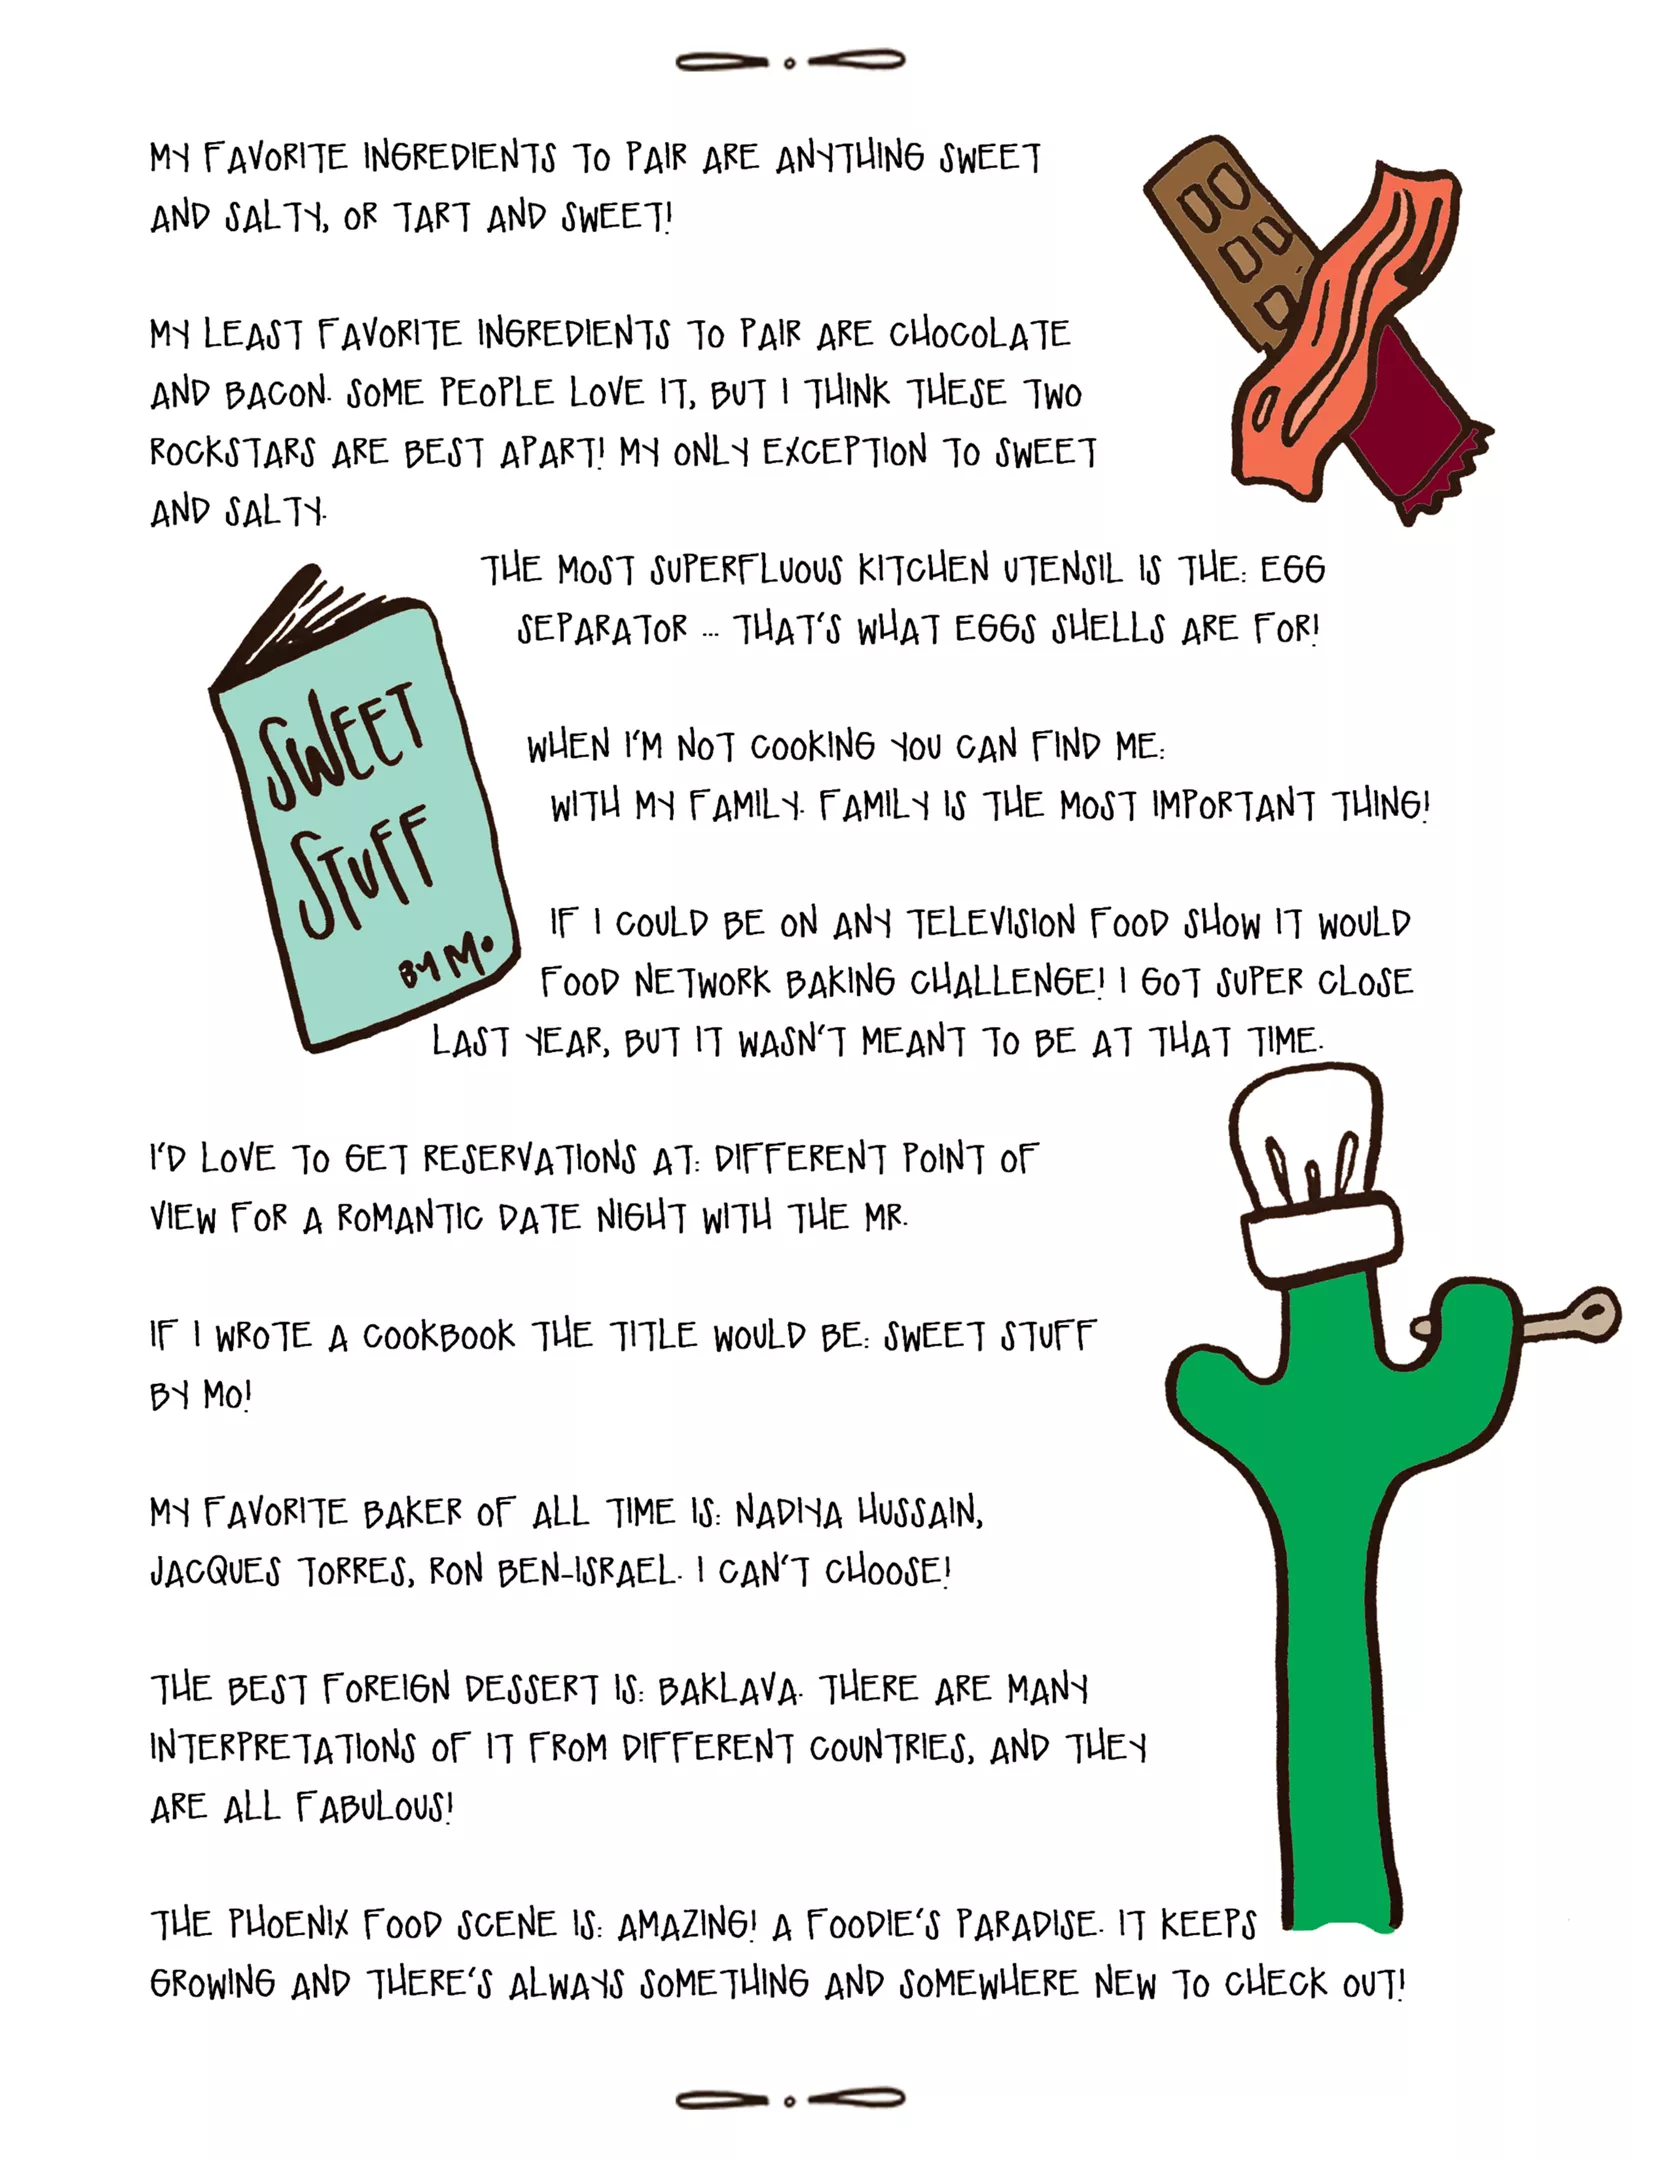 MY FAVORITE INGREDIENTS TO PAIR ARE ANYTHING SWEET
AND SALTY, OR TART AND SWEET!
MY LEAST FAVORITE INGREDIENTS TO PAIR ARE CHOCOLATE
AND BACON. SOME PEOPLE LOVE IT, BUT I THINK THESE TWO
ROCKSTARS ARE BEST APART! MY ONLY EXCEPTION TO SWEET
AND SALTY.
THE MOST SUPERFLUOUS KITCHEN UTENSIL IS THE: EGG
SEPARATOR ... THAT'S WHAT EGGS SHELLS ARE FOR!
SWEET
STUFF
BY MO
WHEN I'M NOT COOKING YOU CAN FIND ME:
WITH MY FAMILY. FAMILY IS THE MOST IMPORTANT THING!
IF I COULD BE ON ANY TELEVISION FOOD SHOW IT WOULD
FOOD NETWORK BAKING CHALLENGE! I GOT SUPER CLOSE
LAST YEAR, BUT IT WASN'T MEANT TO BE AT THAT TIME.
I'D LOVE TO GET RESERVATIONS AT: DIFFERENT POINT OF
VIEW FOR A ROMANTIC DATE NIGHT WITH THE MR.
IF I WROTE A COOKBOOK THE TITLE WOULD BE: SWEET STUFF
BY MO!
MY FAVORITE BAKER OF ALL TIME IS: NADIYA HUSSAIN,
JACQUES TORRES, RON BEN-ISRAEL. I CAN'T CHOOSE!
THE BEST FOREIGN DESSERT IS: BAKLAVA. THERE ARE MANY
INTERPRETATIONS OF IT FROM DIFFERENT COUNTRIES, AND THEY
ARE ALL FABULOUS!
THE PHOENIX FOOD SCENE IS: AMAZING! A FOODIE'S PARADISE. IT KEEPS
GROWING AND THERE'S ALWAYS SOMETHING AND SOMEWHERE NEW TO CHECK OUT!